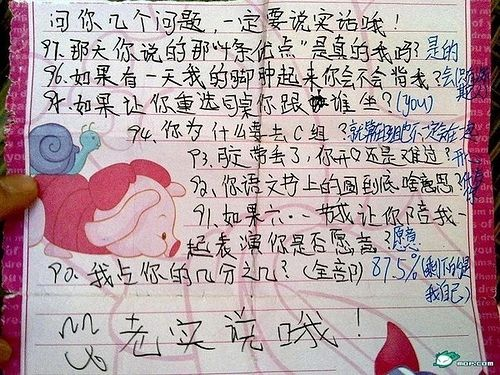 问你几个问题,一定要说实话哦!
97.那天你说的那"十条优点"是真的我吗?是的
96.如果有一天我的脚肿起来你会不会背我?会
95.如果让你重选同桌你跟谁坐?(you)
94.你为什么要去C组?就算
93.子定带丢了,你开心还是难过?
92.你语文书上的圈到底啥意思?
91.如果六·一节我让你陪我一
起表演你是否愿意?愿意
90.我占你的几分之几?(全部)87.5%(剩下的是
我自己)
老实说哦!
MOP.COM